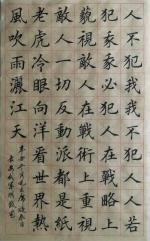 人不犯我我不犯人人若
犯我我必犯人在戰略上
藐視敵人在戰術上重視
敵人一切反動派都是紙
老虎冷眼向洋看世界熱
風吹雨灑江天